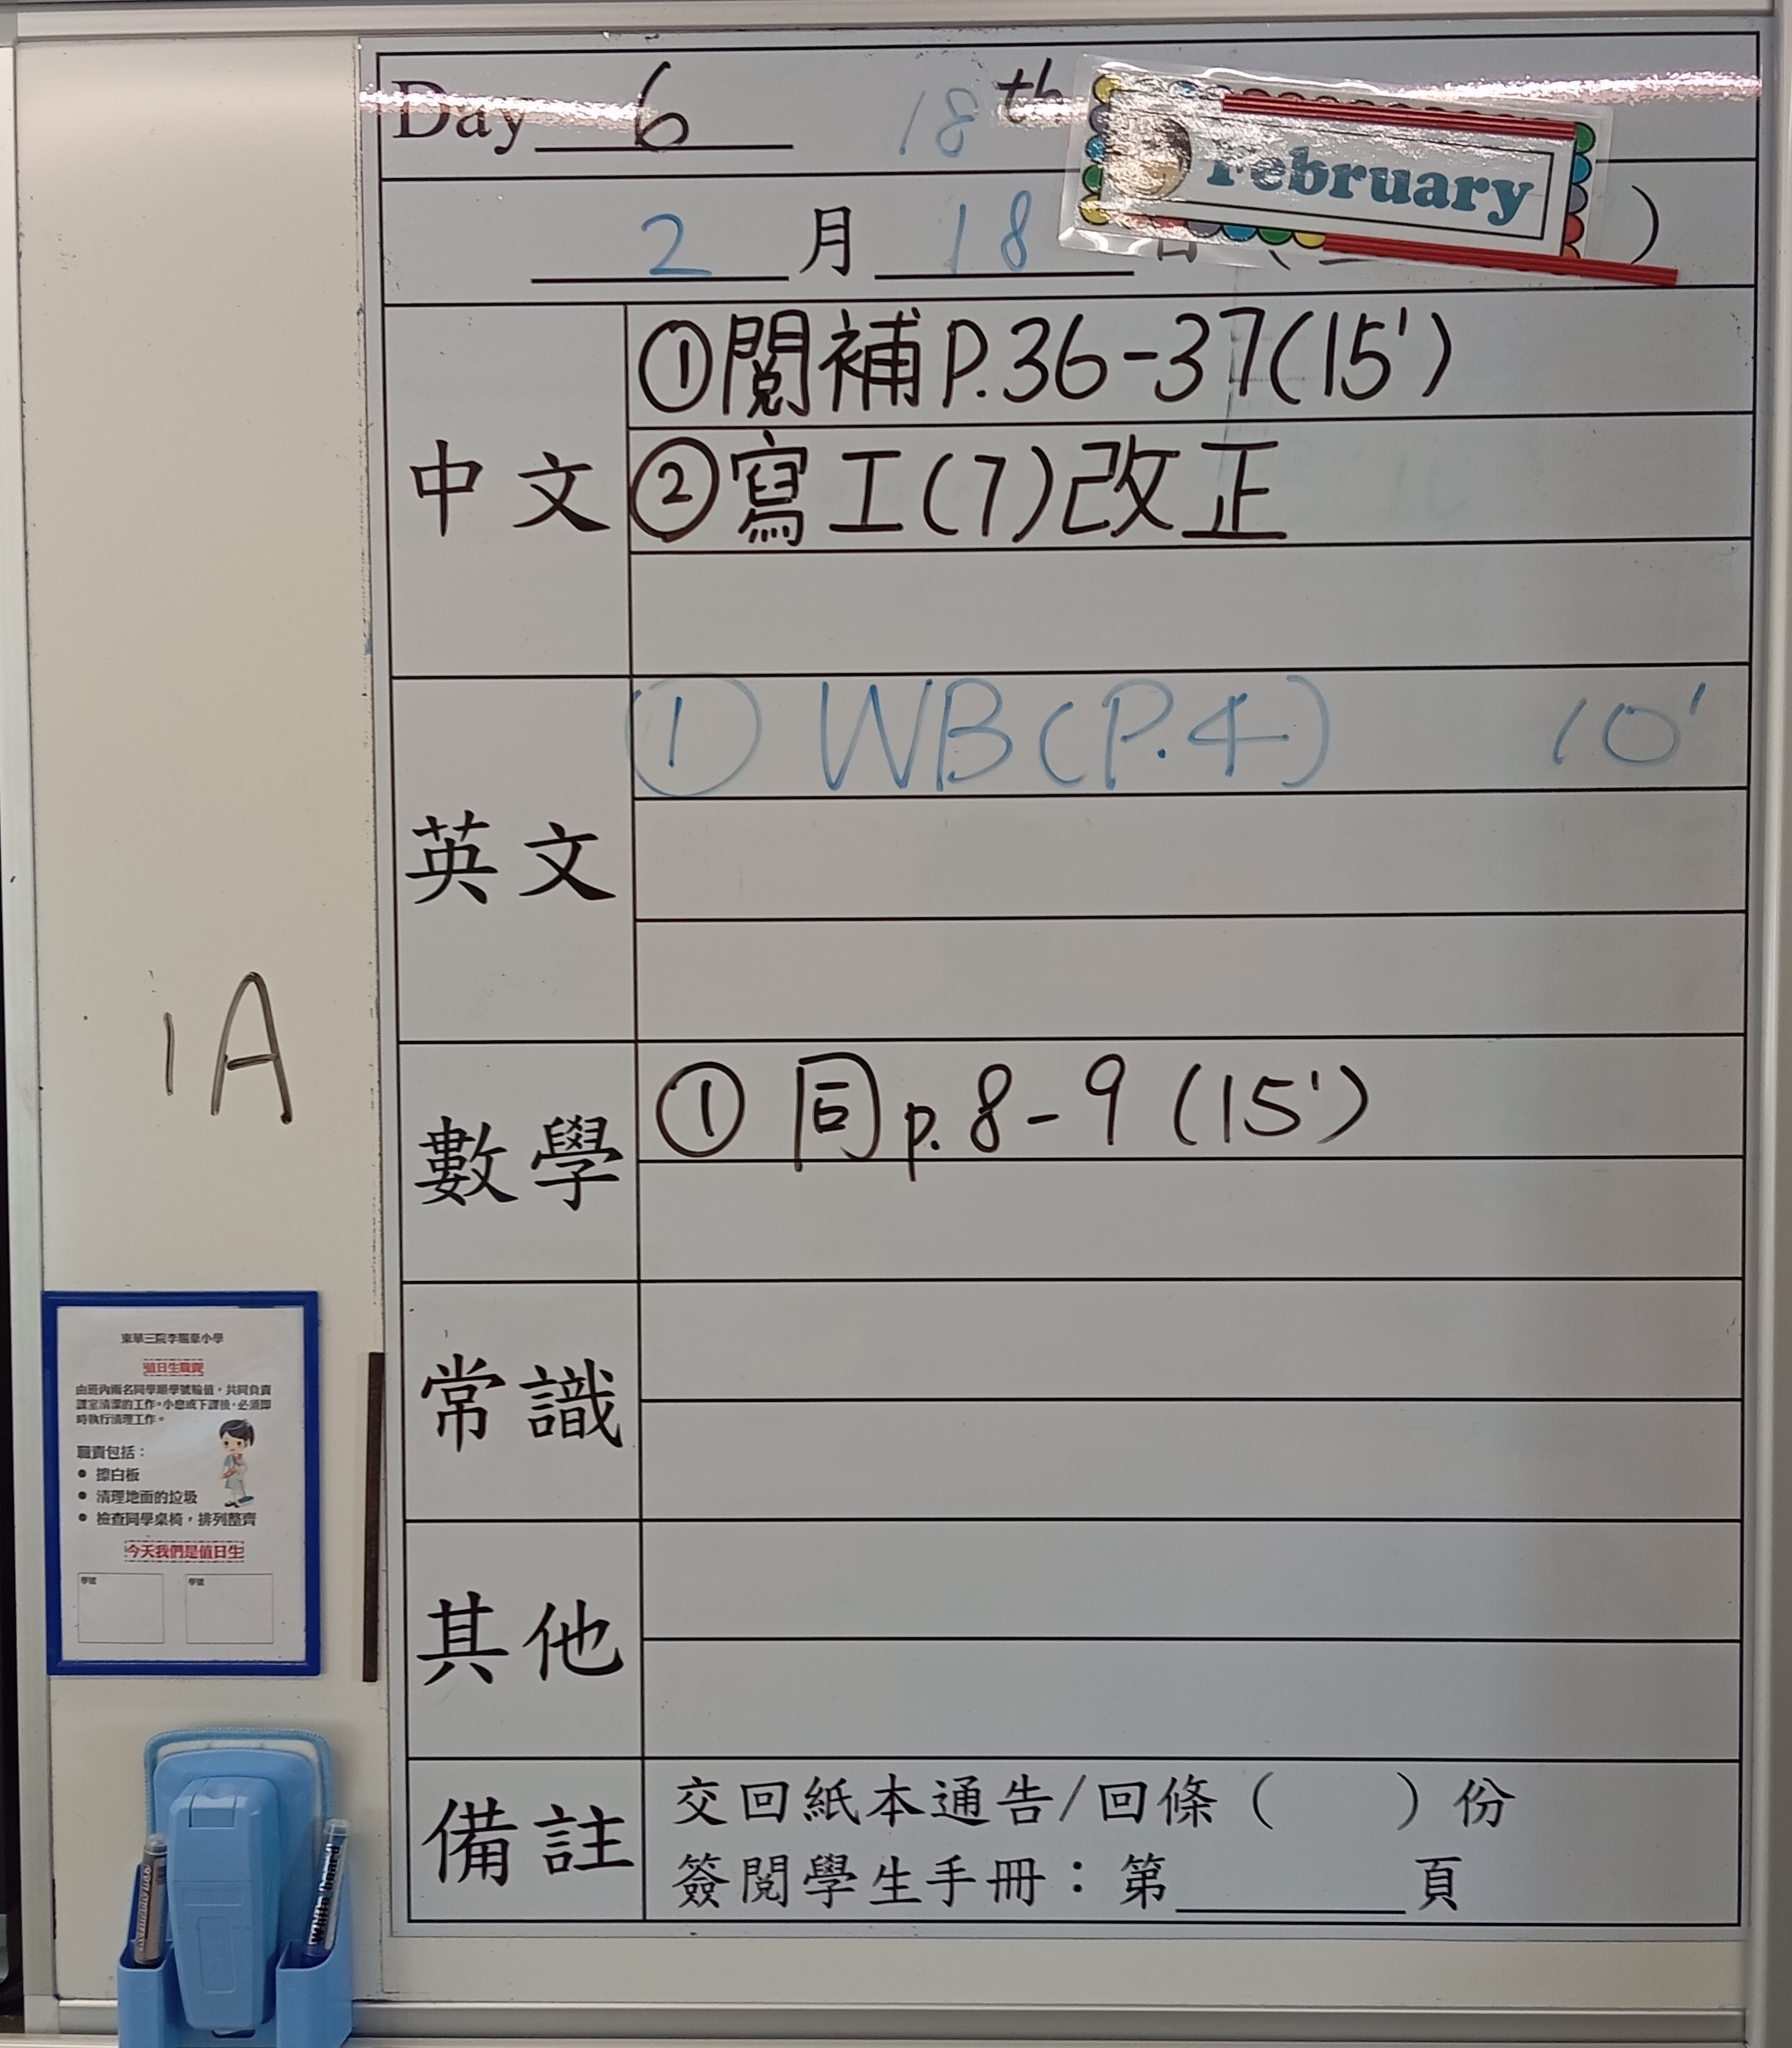 Day 6 18th February
2月18日( )
中文
①閱補P.36-37(15')
②寫工(7)改正
英文
① WB(P.4) 10'
數學
① 同p.8-9(15')
常識
其他
備註
交回紙本通告/回條( )份
簽閱學生手冊:第______頁
1A
東華三院李賜豪小學
值日生職責
由班內兩名同學順學號輪值,共同負責
課室清潔的工作。小息或下課後,必須即
時執行清理工作。
職責包括:
● 擦白板
● 清理地面的垃圾
● 檢查同學桌椅,排列整齊
今天我們是值日生
學號 學號
White Board